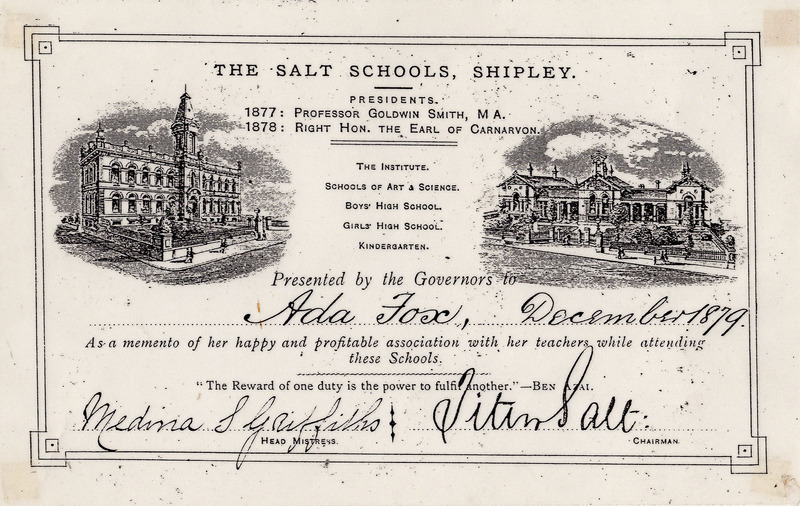 THE SALT SCHOOLS, SHIPLEY.
PRESIDENTS.
1877: PROFESSOR GOLDWIN SMITH, M A.
1878: RIGHT HON. THE EARL OF CARNARVON.
THE INSTITUTE.
SCHOOLS OF ART & SCIENCE.
BOYS' HIGH SCHOOL.
GIRLS' HIGH SCHOOL.
KINDERGARTEN.
Presented by the Governors to
Ada Fox, December 1879.
As a memento of her happy and profitable association with her teachers while attending
these Schools.
"The Reward of one duty is the power to fulfil another."—BEN AZAI.
Medina S Griffiths Titus Salt:
HEAD MISTRESS. CHAIRMAN.